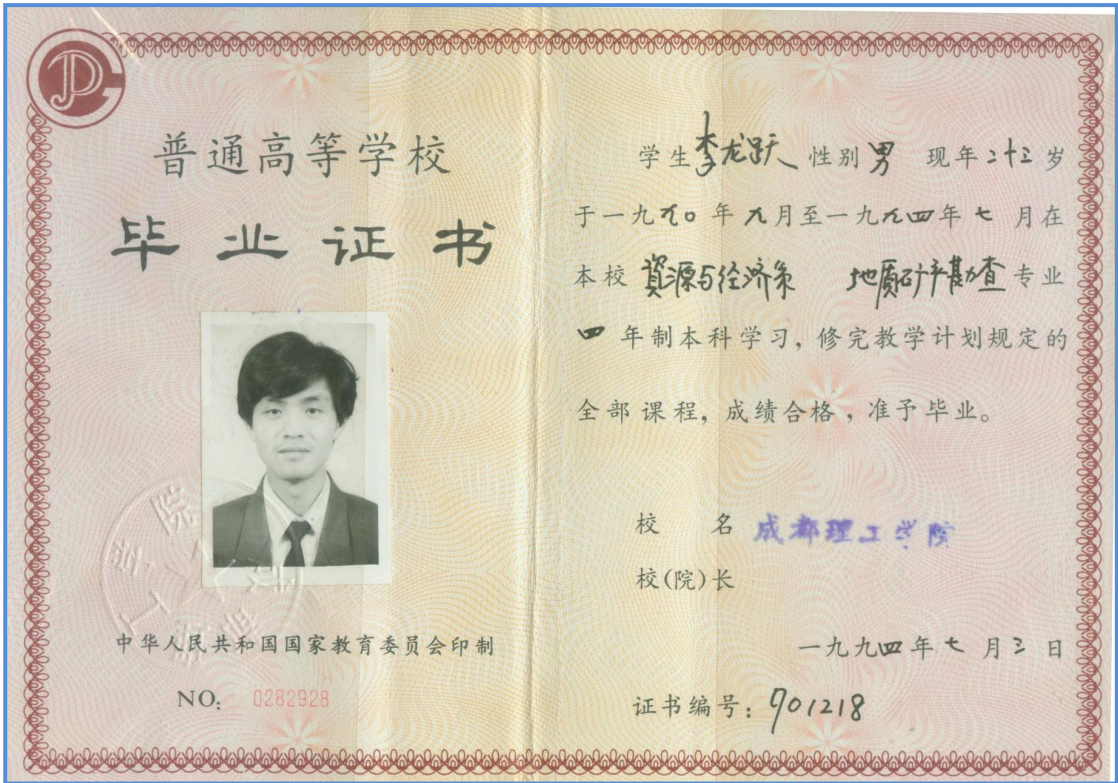 普通高等学校
毕业证书
中华人民共和国国家教育委员会印制
NO: 0282928
学生李龙跃性别男 现年二十三岁
于一九九〇年九月至一九九四年七月在
本校資源与经济系 地质矿产勘查专业
四年制本科学习，修完教学计划规定的
全部课程，成绩合格，准予毕业。
校 名 成都理工学院
校(院)长
一九九四年七月三日
证书编号：901218